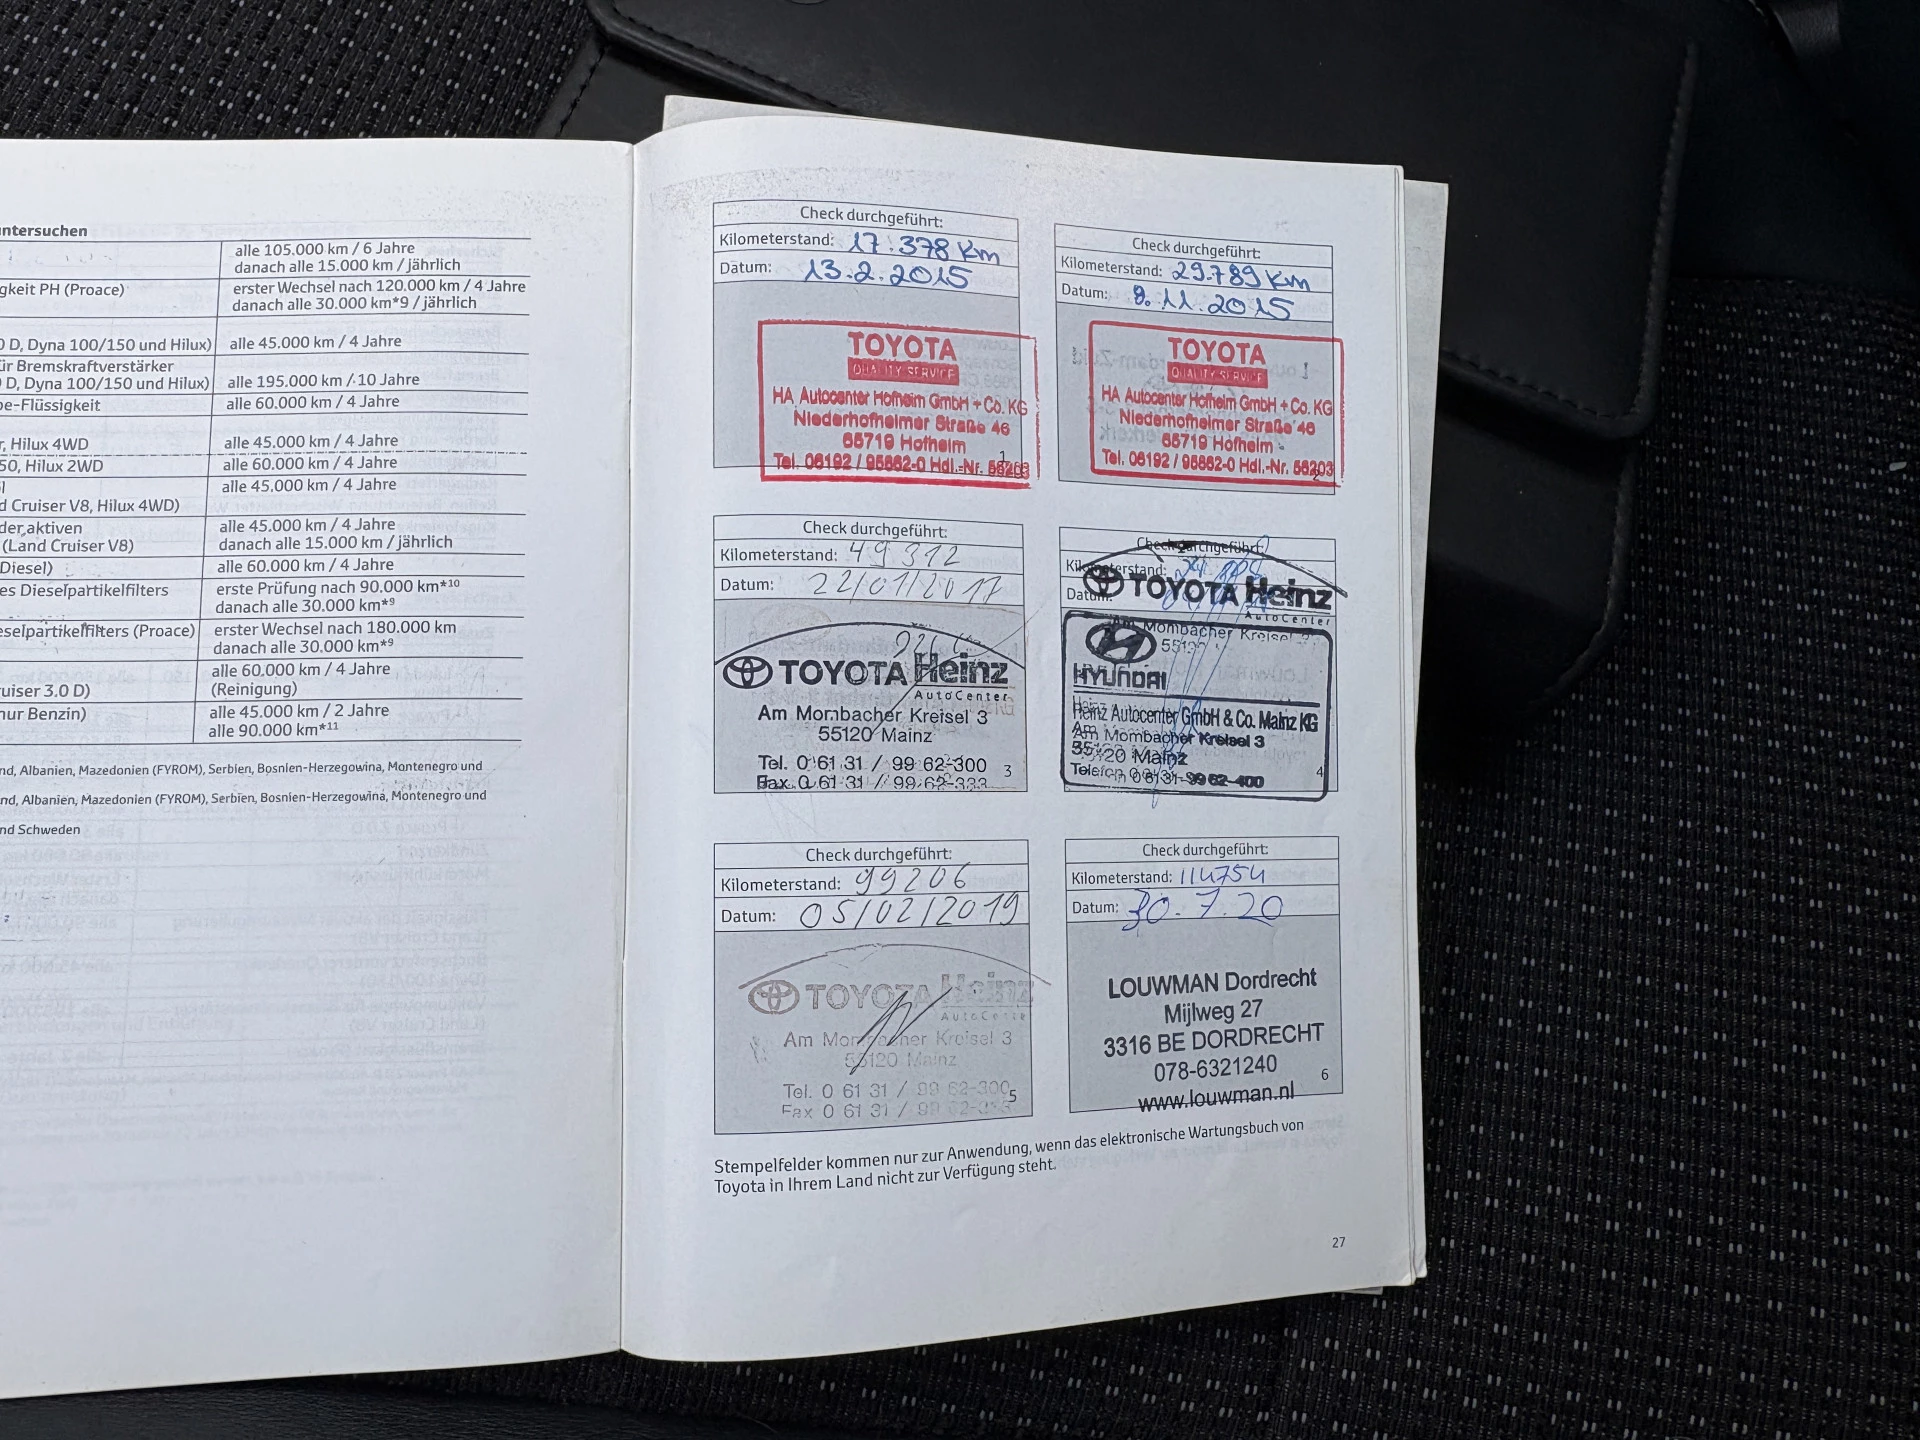 ntersuchen
alle 105.000 km / 6 Jahre
danach alle 15.000 km / jährlich
gkeit PH (Proace)
erster Wechsel nach 120.000 km / 4 Jahre
danach alle 30.000 km*9 / jährlich
0 D, Dyna 100/150 und Hilux)
alle 45.000 km / 4 Jahre
ür Bremskraftverstärker
0 D, Dyna 100/150 und Hilux)
alle 195.000 km / 10 Jahre
be-Flüssigkeit
alle 60.000 km / 4 Jahre
r, Hilux 4WD
alle 45.000 km / 4 Jahre
50, Hilux 2WD
alle 60.000 km / 4 Jahre
l
d Cruiser V8, Hilux 4WD)
alle 45.000 km / 4 Jahre
der aktiven
(Land Cruiser V8)
alle 45.000 km / 4 Jahre
danach alle 15.000 km / jährlich
Diesel)
alle 60.000 km / 4 Jahre
es Dieselpartikelfilters
erste Prüfung nach 90.000 km*10
danach alle 30.000 km*9
eselpartikelfilters (Proace)
erster Wechsel nach 180.000 km
danach alle 30.000 km*9
ruiser 3.0 D)
alle 60.000 km / 4 Jahre
(Reinigung)
nur Benzin)
alle 45.000 km / 2 Jahre
alle 90.000 km*11
nd, Albanien, Mazedonien (FYROM), Serbien, Bosnien-Herzegowina, Montenegro und
nd, Albanien, Mazedonien (FYROM), Serbien, Bosnien-Herzegowina, Montenegro und
nd Schweden
Check durchgeführt:
Kilometerstand: 17.378 Km
Datum: 13.2.2015
TOYOTA
QUALITY SERVICE
HA Autocenter Hofheim GmbH + Co. KG
Niederhofheimer Straße 46
65719 Hofheim
Tel. 06192 / 95862-0 Hdl.-Nr. 56203
1
Check durchgeführt:
Kilometerstand: 29.789 Km
Datum: 9.11.2015
TOYOTA
QUALITY SERVICE
HA Autocenter Hofheim GmbH + Co. KG
Niederhofheimer Straße 46
65719 Hofheim
Tel. 06192 / 95862-0 Hdl.-Nr. 56203
2
Check durchgeführt:
Kilometerstand: 49 312
Datum: 22/01/2017
TOYOTA Heinz
AutoCenter
Am Mombacher Kreisel 3
55120 Mainz
Tel. 0 61 31 / 99 62-300
Fax 0 61 31 / 99 62-333
3
Check durchgeführt:
Kilometerstand:
Datum:
TOYOTA Heinz
AutoCenter
Am Mombacher Kreisel 3
HYUNDAI
Heinz Autocenter GmbH & Co. Mainz KG
Am Mombacher Kreisel 3
55120 Mainz
Telefon 0 61 31-99 62-400
4
Check durchgeführt:
Kilometerstand: 99206
Datum: 05/02/2019
TOYOTA Heinz
AutoCenter
Am Mombacher Kreisel 3
55120 Mainz
Tel. 0 61 31 / 99 62-300
Fax 0 61 31 / 99 62-333
5
Check durchgeführt:
Kilometerstand: 114754
Datum: 30.7.20
LOUWMAN Dordrecht
Mijlweg 27
3316 BE DORDRECHT
078-6321240
www.louwman.nl
6
Stempelfelder kommen nur zur Anwendung, wenn das elektronische Wartungsbuch von
Toyota in Ihrem Land nicht zur Verfügung steht.
27